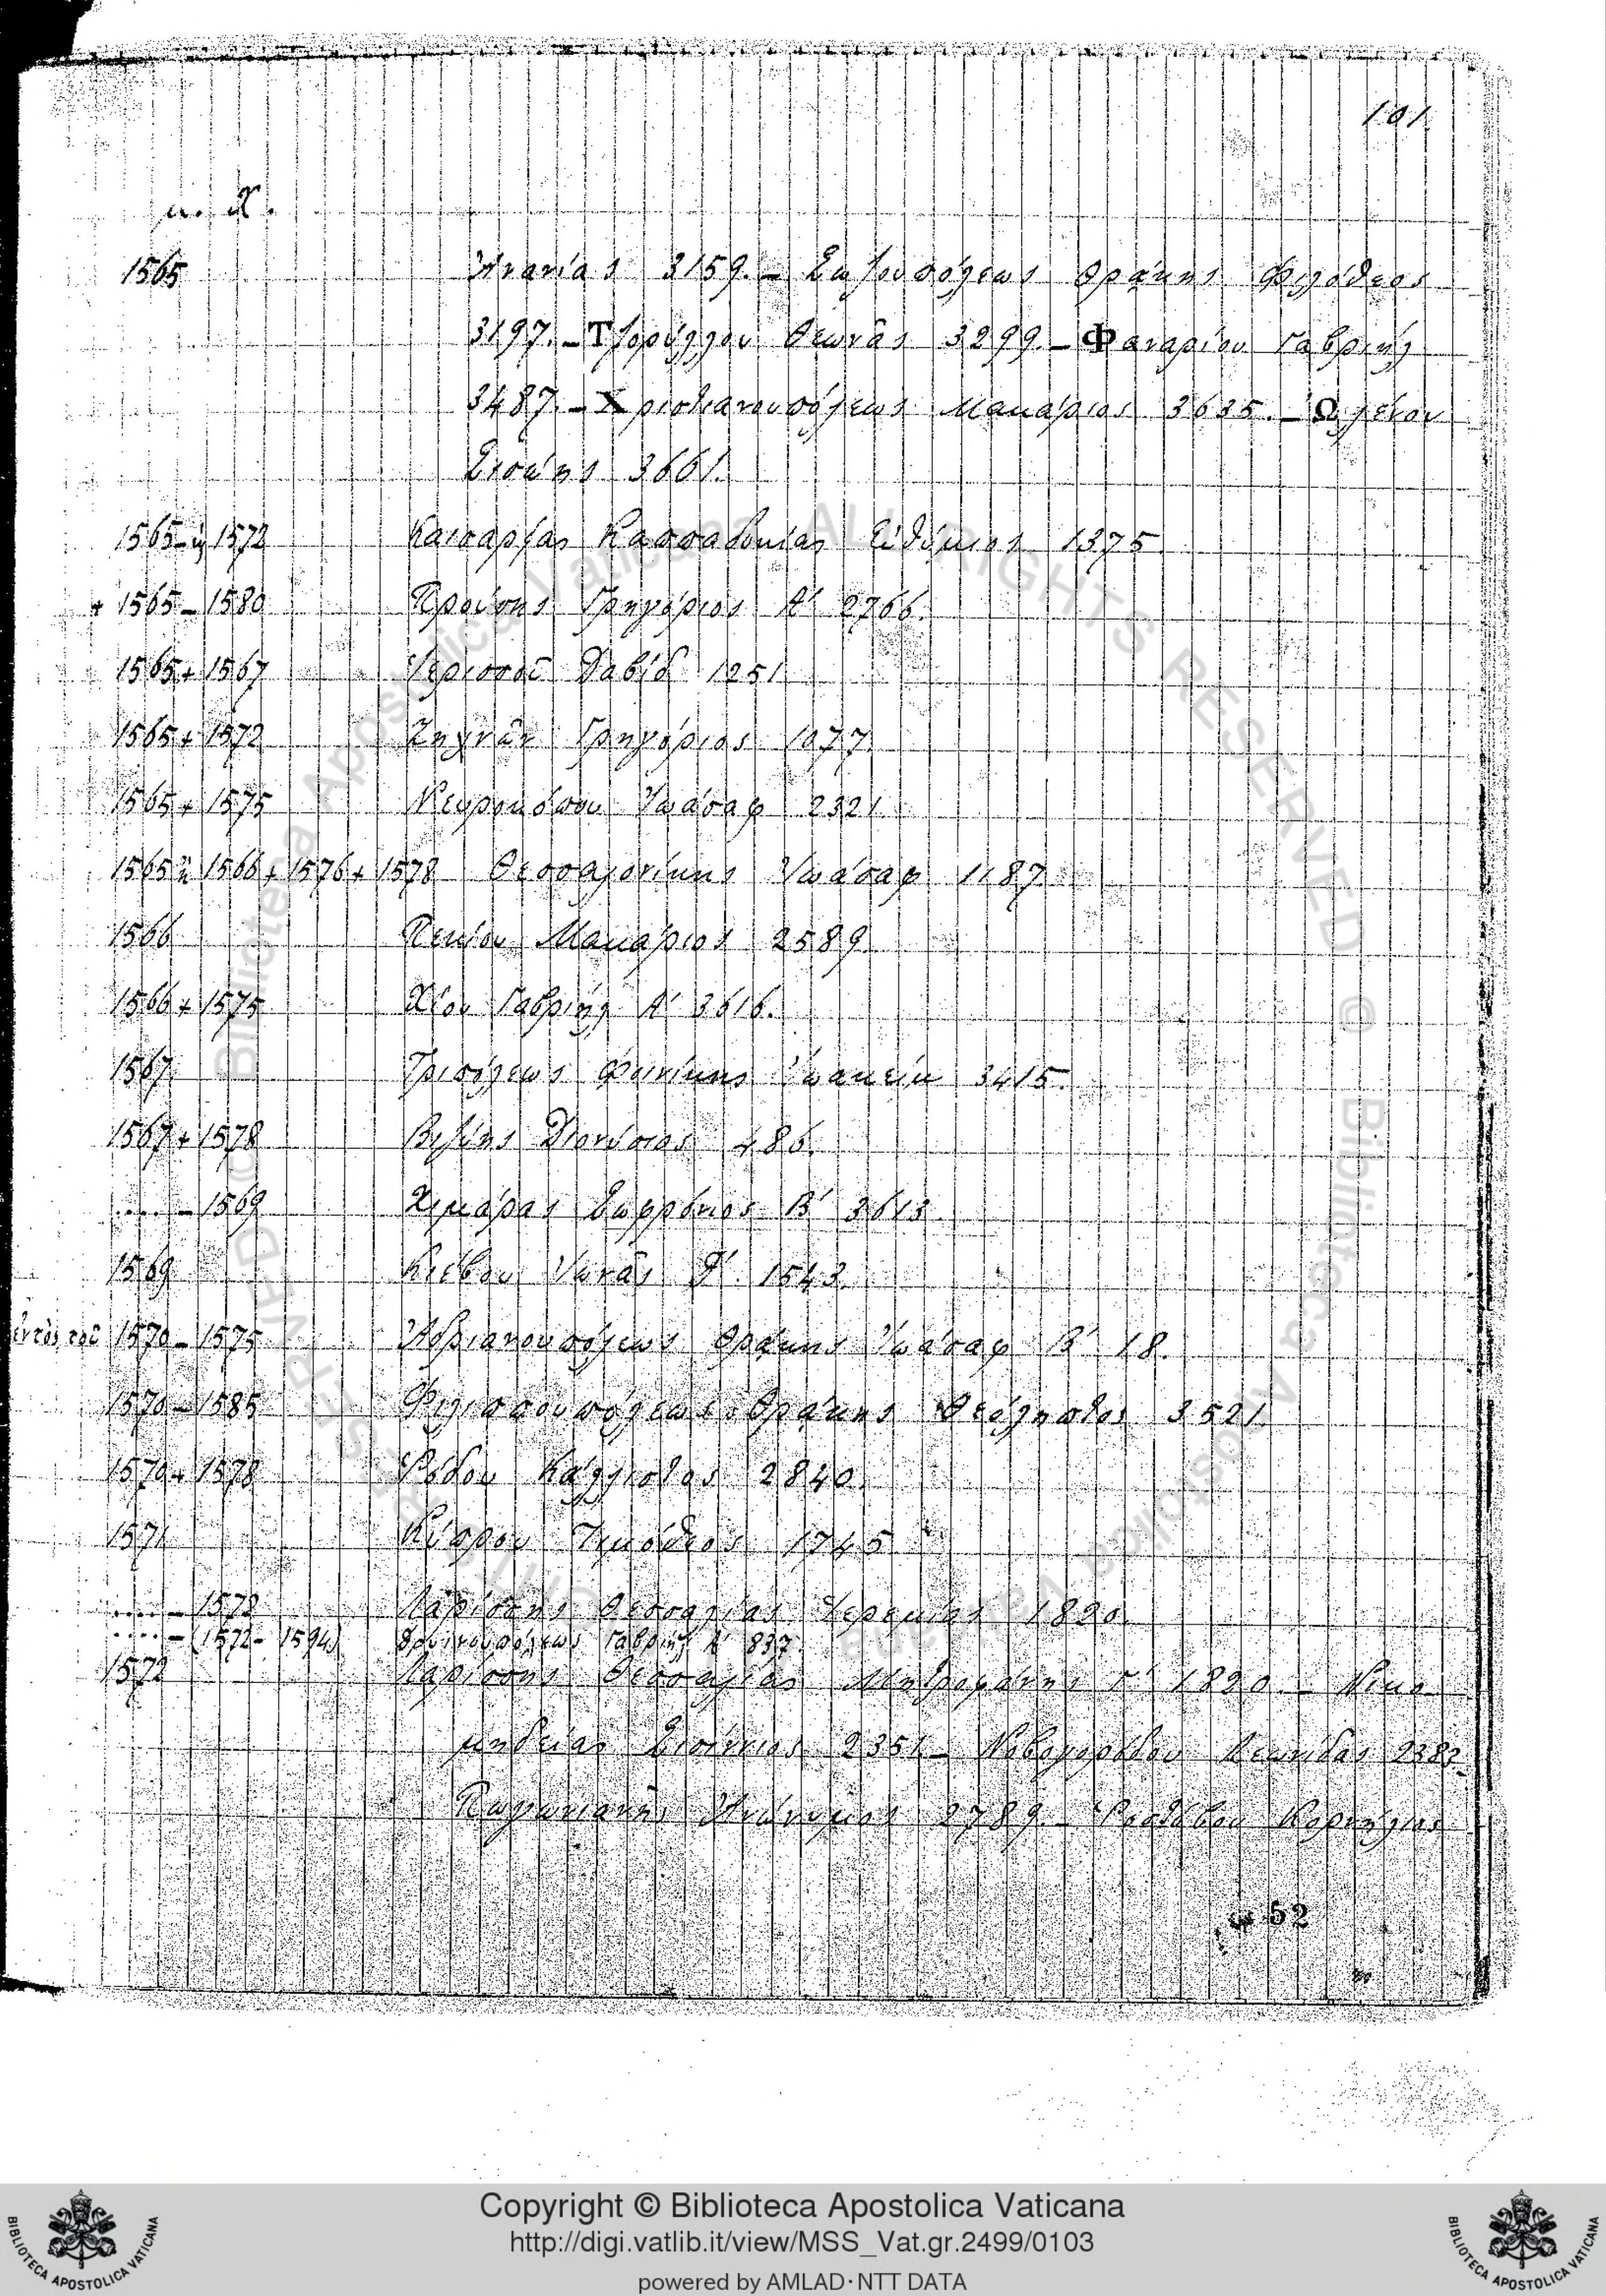 101.
μ. Χ.
1565 Ἀνανίας 3159. – Σωζουπόλεως Θράκης Φιλόθεος
3197. – Τζορούλλου Θεωνᾶς 3299. – Φαναρίου Γαβριὴλ
3487. – Χριστιανουπόλεως Μακάριος 3635. – Ὠλένου
Σισώης 3661.
1565 – ἢ 1572 Καισαρείας Καππαδοκίας Εὐθύμιος 1375.
+ 1565 – 1580 Προύσης Γρηγόριος Α' 2766.
1565 + 1567 Ἱερισσοῦ Δαβίδ 1251.
1565 + 1572 Ζηχνῶν Γρηγόριος 1077.
1565 + 1575 Νευροκόπου Ἰωάσαφ 2321.
1565 ἢ 1566 + 1576 + 1578 Θεσσαλονίκης Ἰωάσαφ 1187.
1566 Πεκίου Μακάριος 2589.
1566 + 1575 Χίου Γαβριὴλ Α' 3616.
1567. Τριπόλεως Φοινίκης Ἰωακείμ 3415.
1567 + 1578 Βιζύης Διονύσιος 486.
..... – 1569 Χιμάρας Σωφρόνιος Β' 3613.
1569 Κιέβου Ἰωνᾶς Δ' 1543.
ἐντὸς τοῦ 1570 – 1575 Ἀδριανουπόλεως Θράκης Ἰωάσαφ Β' 18.
1570 – 1585 Φιλιππουπόλεως Θράκης Θεόληπτος 3521.
1570 + 1578 Ῥόδου Κάλλιστος 2840.
1571 Κύπρου Τιμόθεος 1745.
..... – 1572 Λαρίσσης Θεσσαλίας Ἱερεμίας 1820.
..... – (1572 – 1594) Δρυινουπόλεως Γαβριὴλ Α' 837.
1572 Λαρίσσης Θεσσαλίας Μητροφάνης 1820. – Νικο
μηδείας Σισίννιος 2351 – Νοβογορόδου Λεωνίδας 2382 –
Πωγωνιανῆς Ἀνώνυμος 2789. – Ῥοστόβου Κορνήλιος
52
Copyright © Biblioteca Apostolica Vaticana
http://digi.vatlib.it/view/MSS_Vat.gr.2499/0103
powered by AMLAD·NTT DATA
BIBLIOTECA APOSTOLICA VATICANA
BIBLIOTECA APOSTOLICA VATICANA